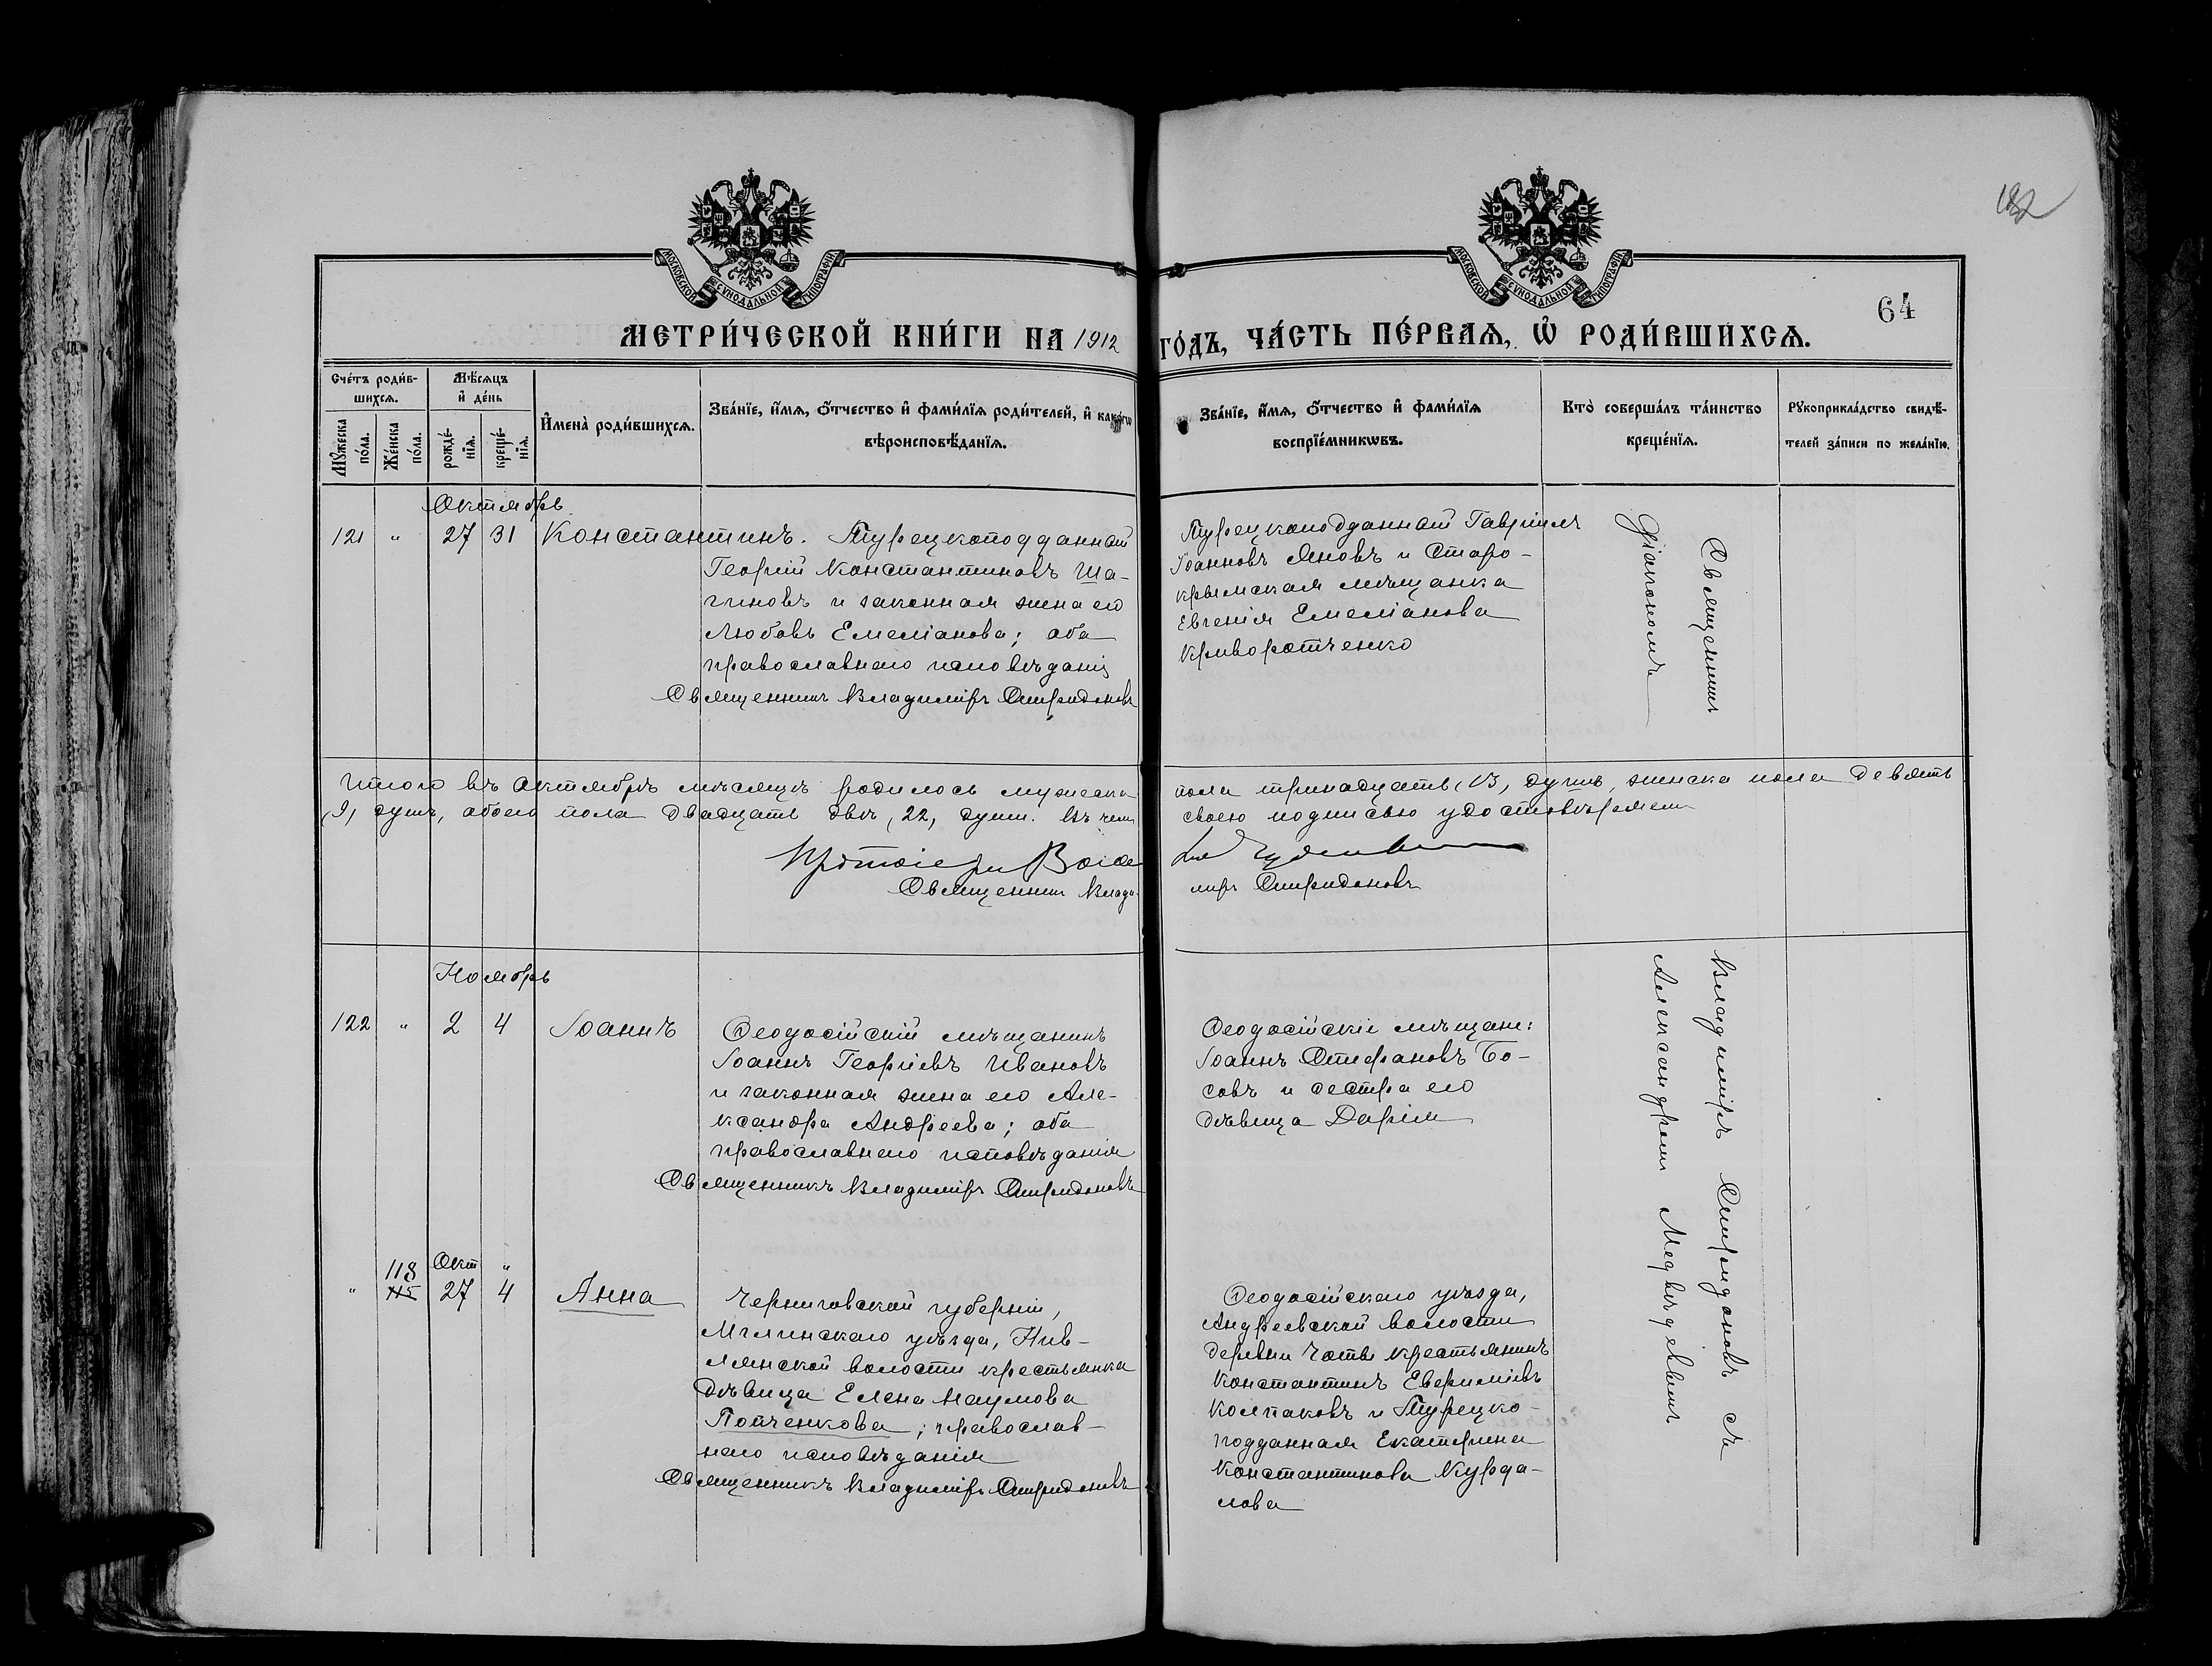 182
МОСКОВСКОЙ СѴНОДАЛЬНОЙ ТИПОГРАФІИ
МОСКОВСКОЙ СѴНОДАЛЬНОЙ ТИПОГРАФІИ
64
МЕТРИ́ЧЕСКОЙ КНИ́ГИ НА 1912 ГО́ДЪ, ЧА́СТЬ ПЕ́РВАѦ, Ѡ҆ РОДИ́ВШИХСѦ.
Сче́тъ роди́в-
шихсѧ.
Мѣ́сѧцъ
и҆ де́нь
Мꙋ́жеска
по́ла.
Же́нска
по́ла.
рожде́-
нїѧ.
креще́-
нїѧ.
И҆мена̀ роди́вшихсѧ.
Зва́нїе, и҆́мѧ, ѻ҆́тчество и҆ фами́лїѧ роди́телей, и҆ како́гѡ
вѣроисповѣ́данїѧ.
Зва́нїе, и҆́мѧ, ѻ҆́тчество и҆ фами́лїѧ
воспрїе́мникѡвъ.
Кто̀ соверша́лъ та́инство
креще́нїѧ.
Рꙋкоприкла́дство свидѣ́-
телей за́писи по жела́нїю.
Октябрь
121 " 27 31 Константинъ. Турецкоподданный
Георгій Константиновъ Ша-
гиновъ и законная жена его
Любовь Емеліанова; оба
православнаго исповѣданія
Священникъ Владиміръ Спиридоновъ
Турецкоподданный Гавріилъ
Іоанновъ Яновъ и Старо-
крымская мѣщанка
Евгенія Емеліанова
Криворотченко
Священникъ
Діакономъ
Итого въ октябрѣ мѣсяцѣ родилось мужеска пола тринадцать, 13, душъ, женска пола девять
, 9, душъ, обоего пола двадцать двѣ, 22, души. Въ чемъ своею подписью удостовѣряемъ
Протоіерей
Священникъ Влади- міръ Спиридоновъ
Ноябрь
122 " 2 4 Іоаннъ Ѳеодосійскій мѣщанинъ
Іоаннъ Георгіевъ Ивановъ
и законная жена его Але-
ксандра Андреева; оба
православнаго исповѣданія
Священникъ Владиміръ Спиридоновъ
Ѳеодосійскіе мѣщане:
Іоаннъ Стефановъ Бо-
совъ и сестра его
дѣвица Дарія
Владиміръ Спиридоновъ съ
Александромъ Медвѣдевымъ
118 Окт "
" 115 27 4 Анна Черниговской губерніи,
Мглинскаго уѣзда, Нив-
лянской волости крестьянка
дѣвица Елена Наумова
Попченкова; православ-
наго исповѣданія
Священникъ Владиміръ Спиридоновъ
Ѳеодосійскаго уѣзда,
Андреевской волости
деревни крестьянинъ
Константинъ Евфиміевъ
Колпаковъ и Турецко-
подданная Екатерина
Константинова Курда-
лова